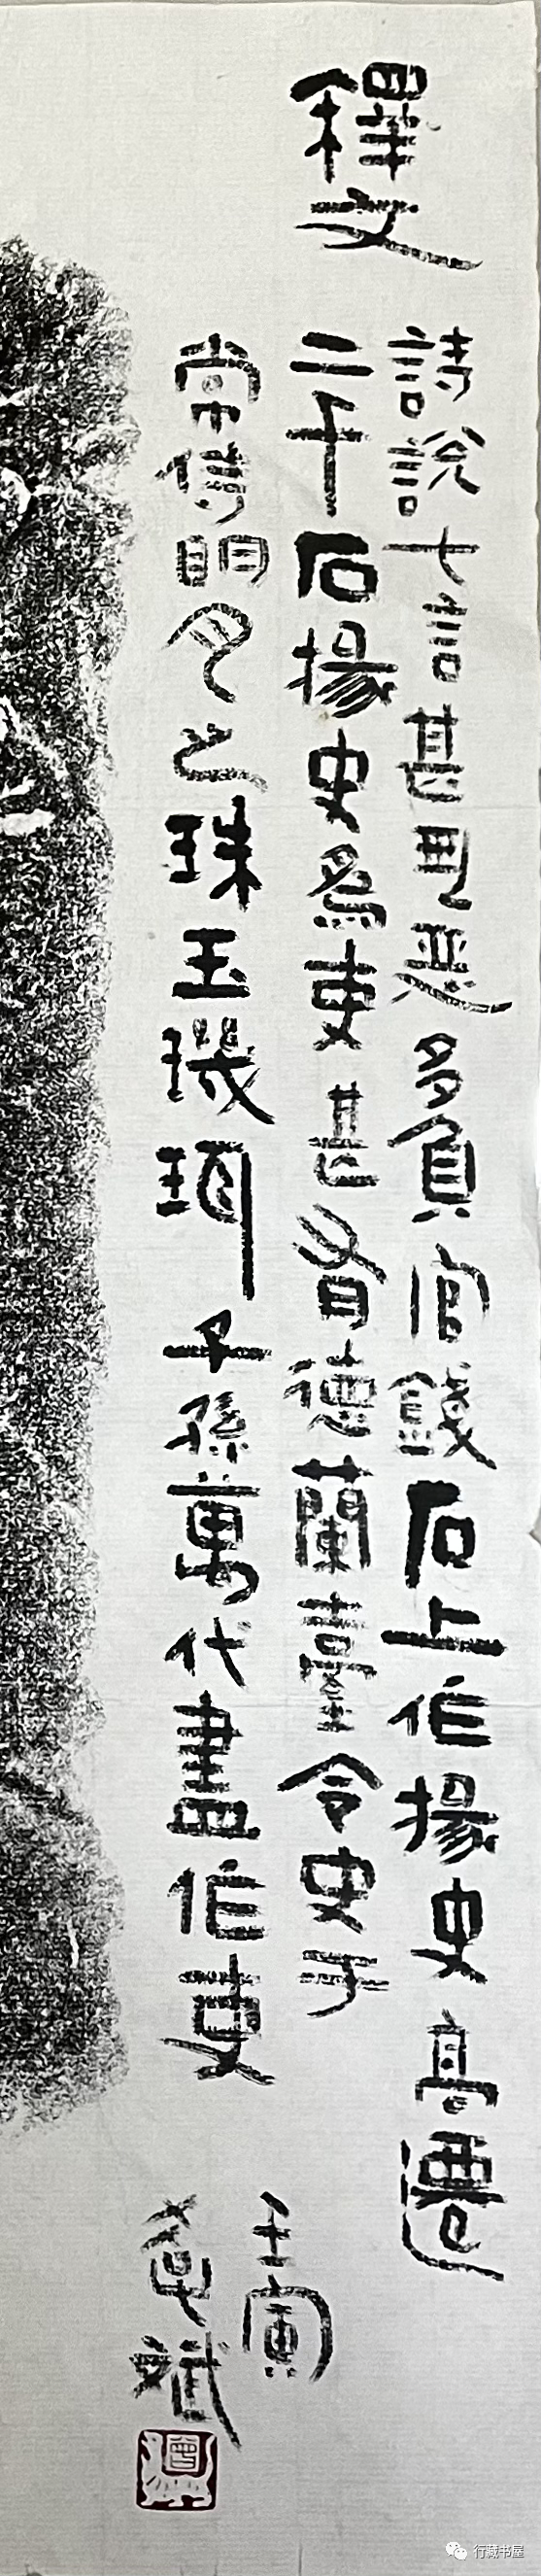 釋文
詩說七言甚惡多負官錢石上作掾史高遷
二千石掾史為吏甚有德蘭臺令史于
常侍明月之珠玉璣珥子孫萬代盡作吏
壬寅
斌
曾
行藏书屋